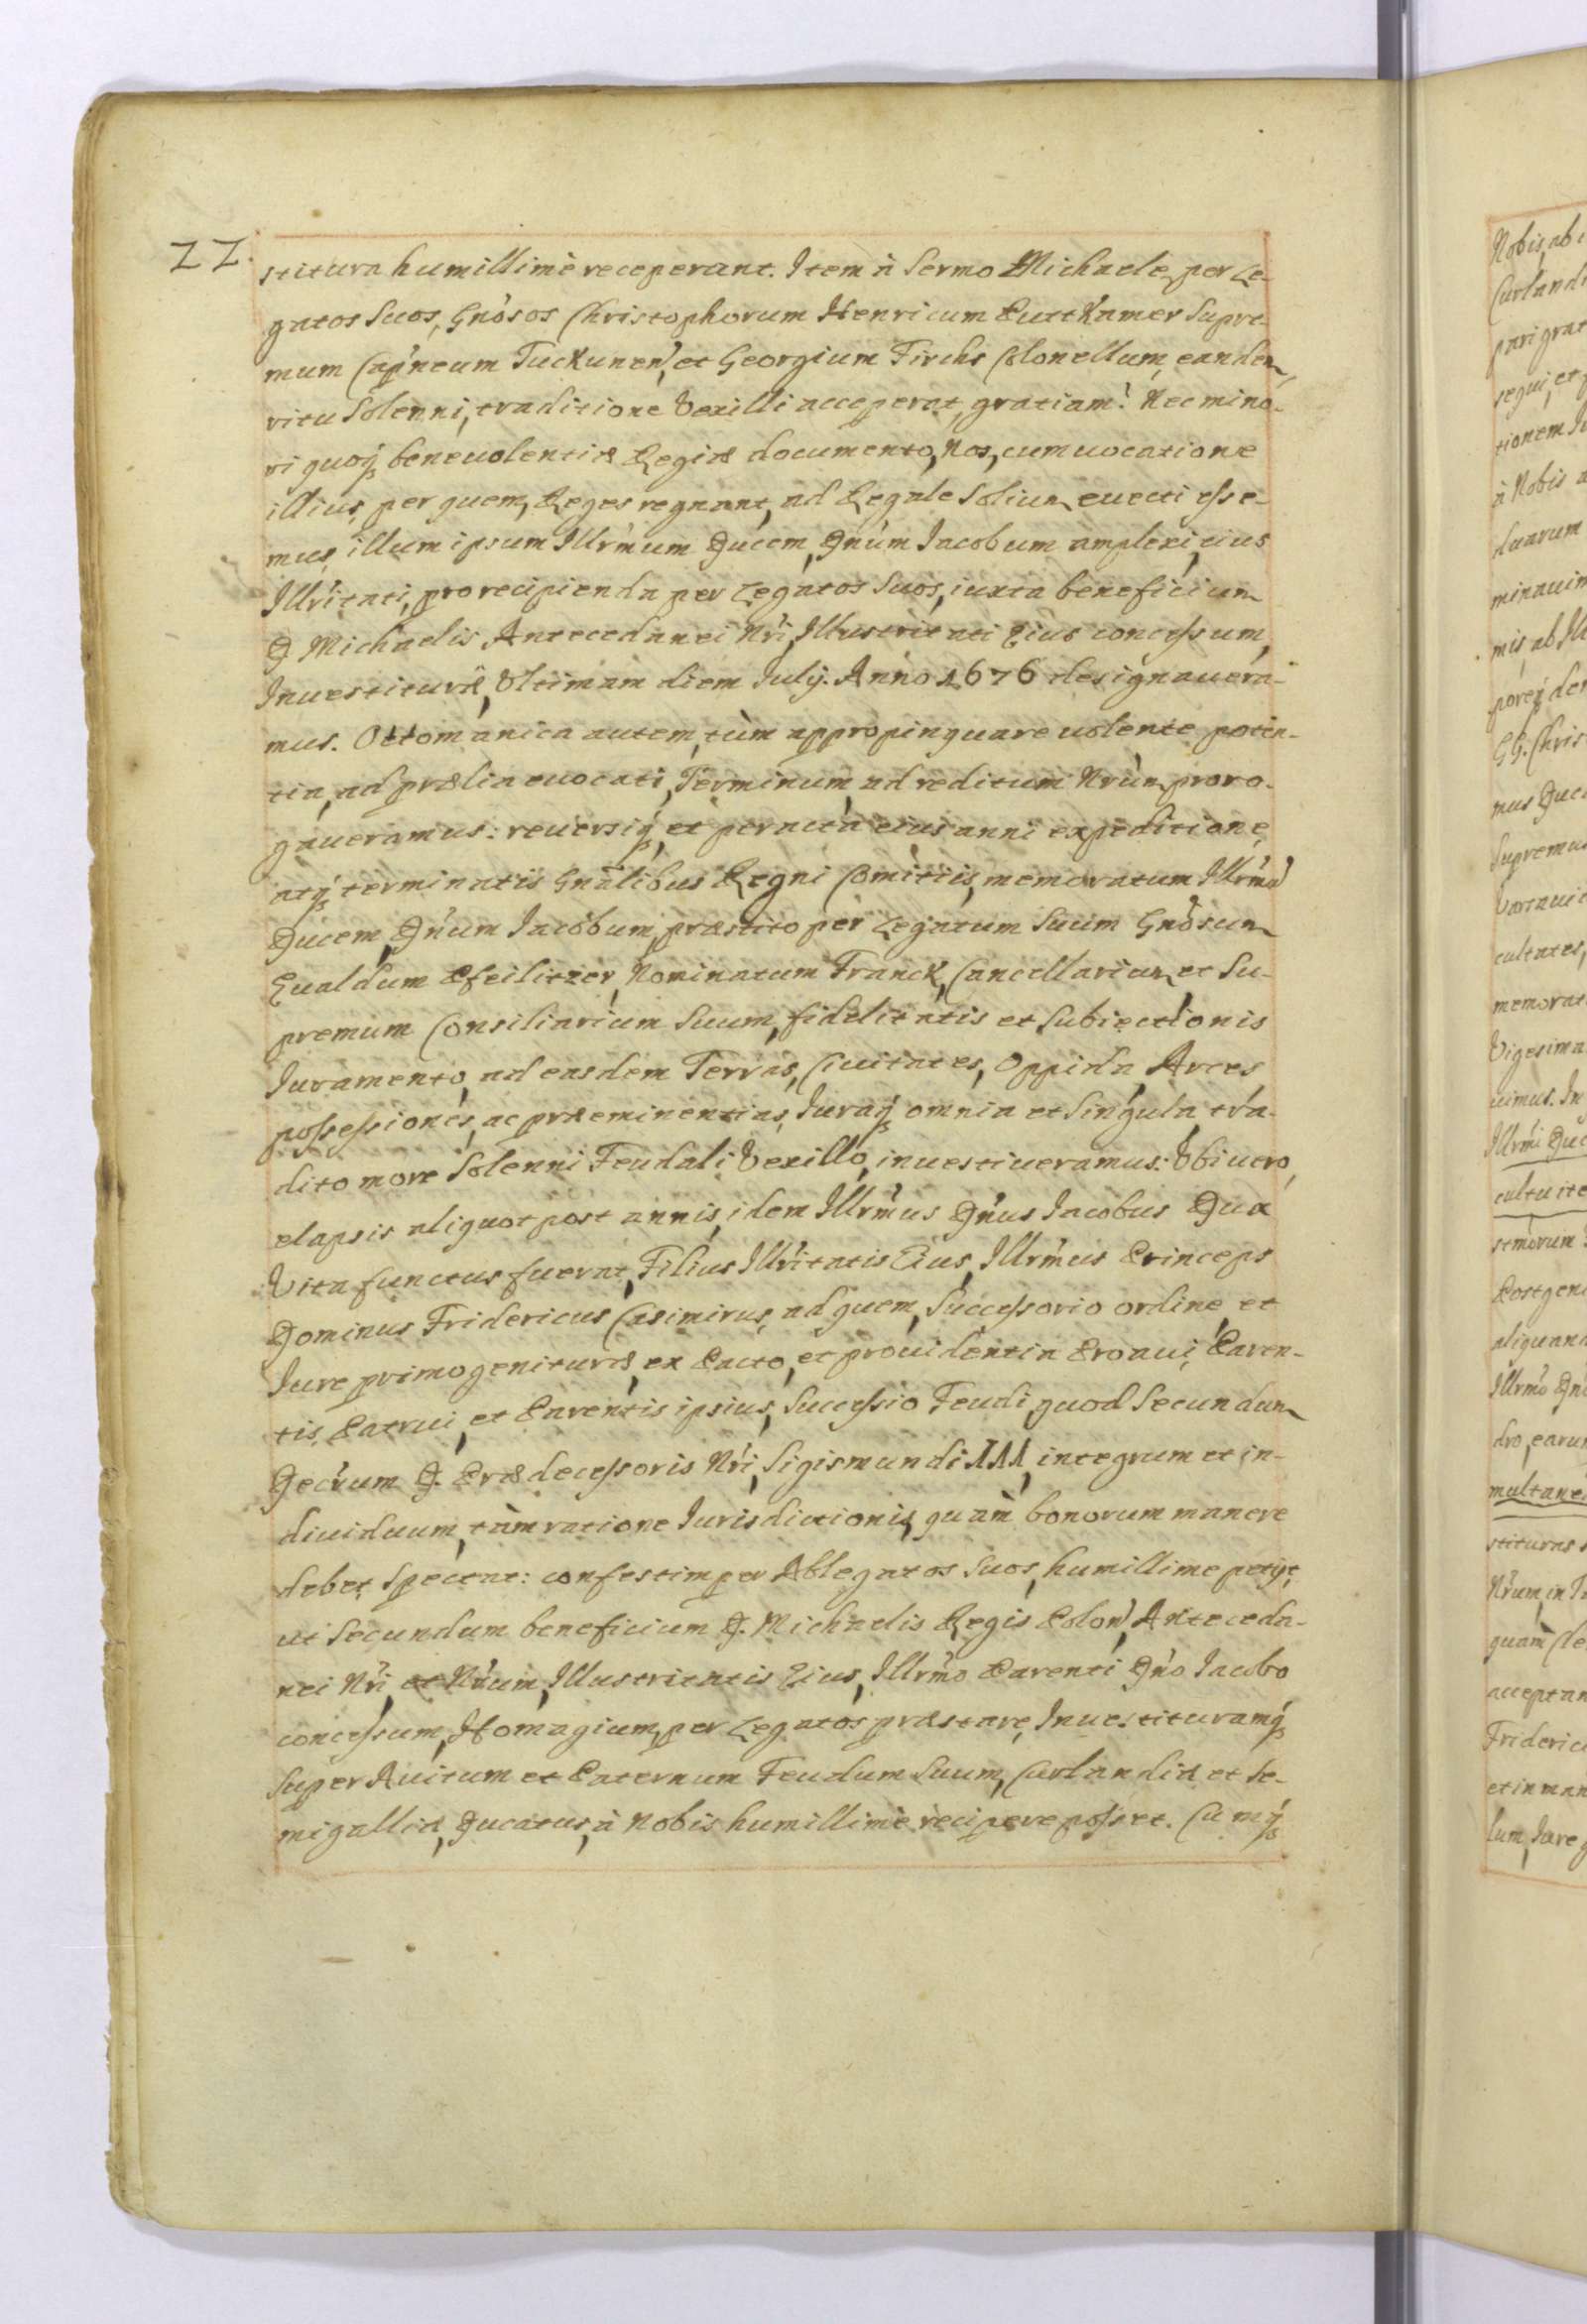 22.
stitura humillimè receperant. Item à Sermo Michaele, per Le-
gatos Suos, Gnôsos Christophorum Henricum Puttkamer Supre-
mum Capneum Tuckunen, et Georgium Firchs Colonellum, eandem,
ritu Solenni, traditione Vexilli acceperat, gratiam. Nec mino-
ri quoq; beneuolentiæ Regiæ documento, Nos, cum uocatione
illius, per quem, Reges regnant, ad Regale Solium euecti esse-
mus, illum ipsum Illrmum Ducem, Dnum Iacobum amplexi, eius
Illritati, pro recipienda per Legatos Suos, iuxta beneficium
D. Michaelis Antecedanei Nri, Illustritati Eius concessum,
Inuestitura, Vltimam diem Iulij. Anno 1676 designauera-
mus. Ottomanica autem, tùm appropinquare uolente poten-
tia, ad prælia euocati, Terminum, ad reditum Nrum proro-
gaueramus: reuersiq; et peracta eius anni expeditione,
atq; terminatis Gnalibus Regni Comitiis, memoratum Illrmu
Ducem, Dnum Iacobum, præstito per Legatum Suum Gnôsum
Eualdum Pfeilitzer, Nominatum Franck, Cancellarium et Su-
premum Consiliarium Suum, fidelitatis et Subiectionis
Iuramento, ad easdem Terras, Ciuitates, Oppida, Arces
possessiones, ac præeminentias, Iuraq; omnia et Singula, tra-
dito more Solenni Feudali Vexillo, inuestiueramus: Vbi uero,
elapsis aliquot post annis, idem Illrmus Dnus Iacobus Dux
Vita functus fuerat, Filius Illritatis Eius, Illrmus Princeps
Dominus Fridericus Casimirus, ad quem, Successorio ordine, et
Iure primogenituræ, ex Pacto, et prouidentia Proaui, Paren-
tis, Patrui, et Parentis ipsius, Successio Feudi, quod Secundum
Decrum D. Prædecessoris Nri, Sigismundi III, integrum et in-
diuiduum, tàm ratione Iurisdictionis, quàm bonorum manere
debet, Spectat: confestim per Ablegatos Suos, humillime petijt,
ut Secundum beneficium D. Michaelis Regis Polon, Anteceda-
nei Nri, et Nrum, Illustritatis Eius, Illrmo Parenti Dno Iacobo
concessum, Homagium, per Legatos præstare, Inuestituramq;
Super Auitum et Paternum Feudum Suum, Curlandiæ et Se-
migalliæ, Ducatus, à Nobis humillimè recipere posset. Cumq;
Nobis, ab
Curlandi
pari grat
sequi, et
tionem
à Nobis
duarum
minauim
mis, ab
GG. Chris
Supremu
cultates,
memorat
Vigesima
uimus. In
Illrmi Duc
aliquan
Illrmo Dn
multane
stituras
Nrum, in
quàm
acceptan
Frideric
et in man
lum, Iure